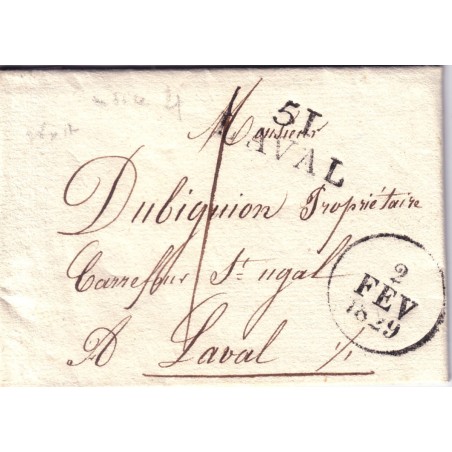 51
LAVAL
Monsieur
Dubignion Propriétaire
Carrefour St. ugal
A Laval
2
FEV
1829
1